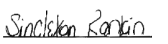 Singleton Rankin